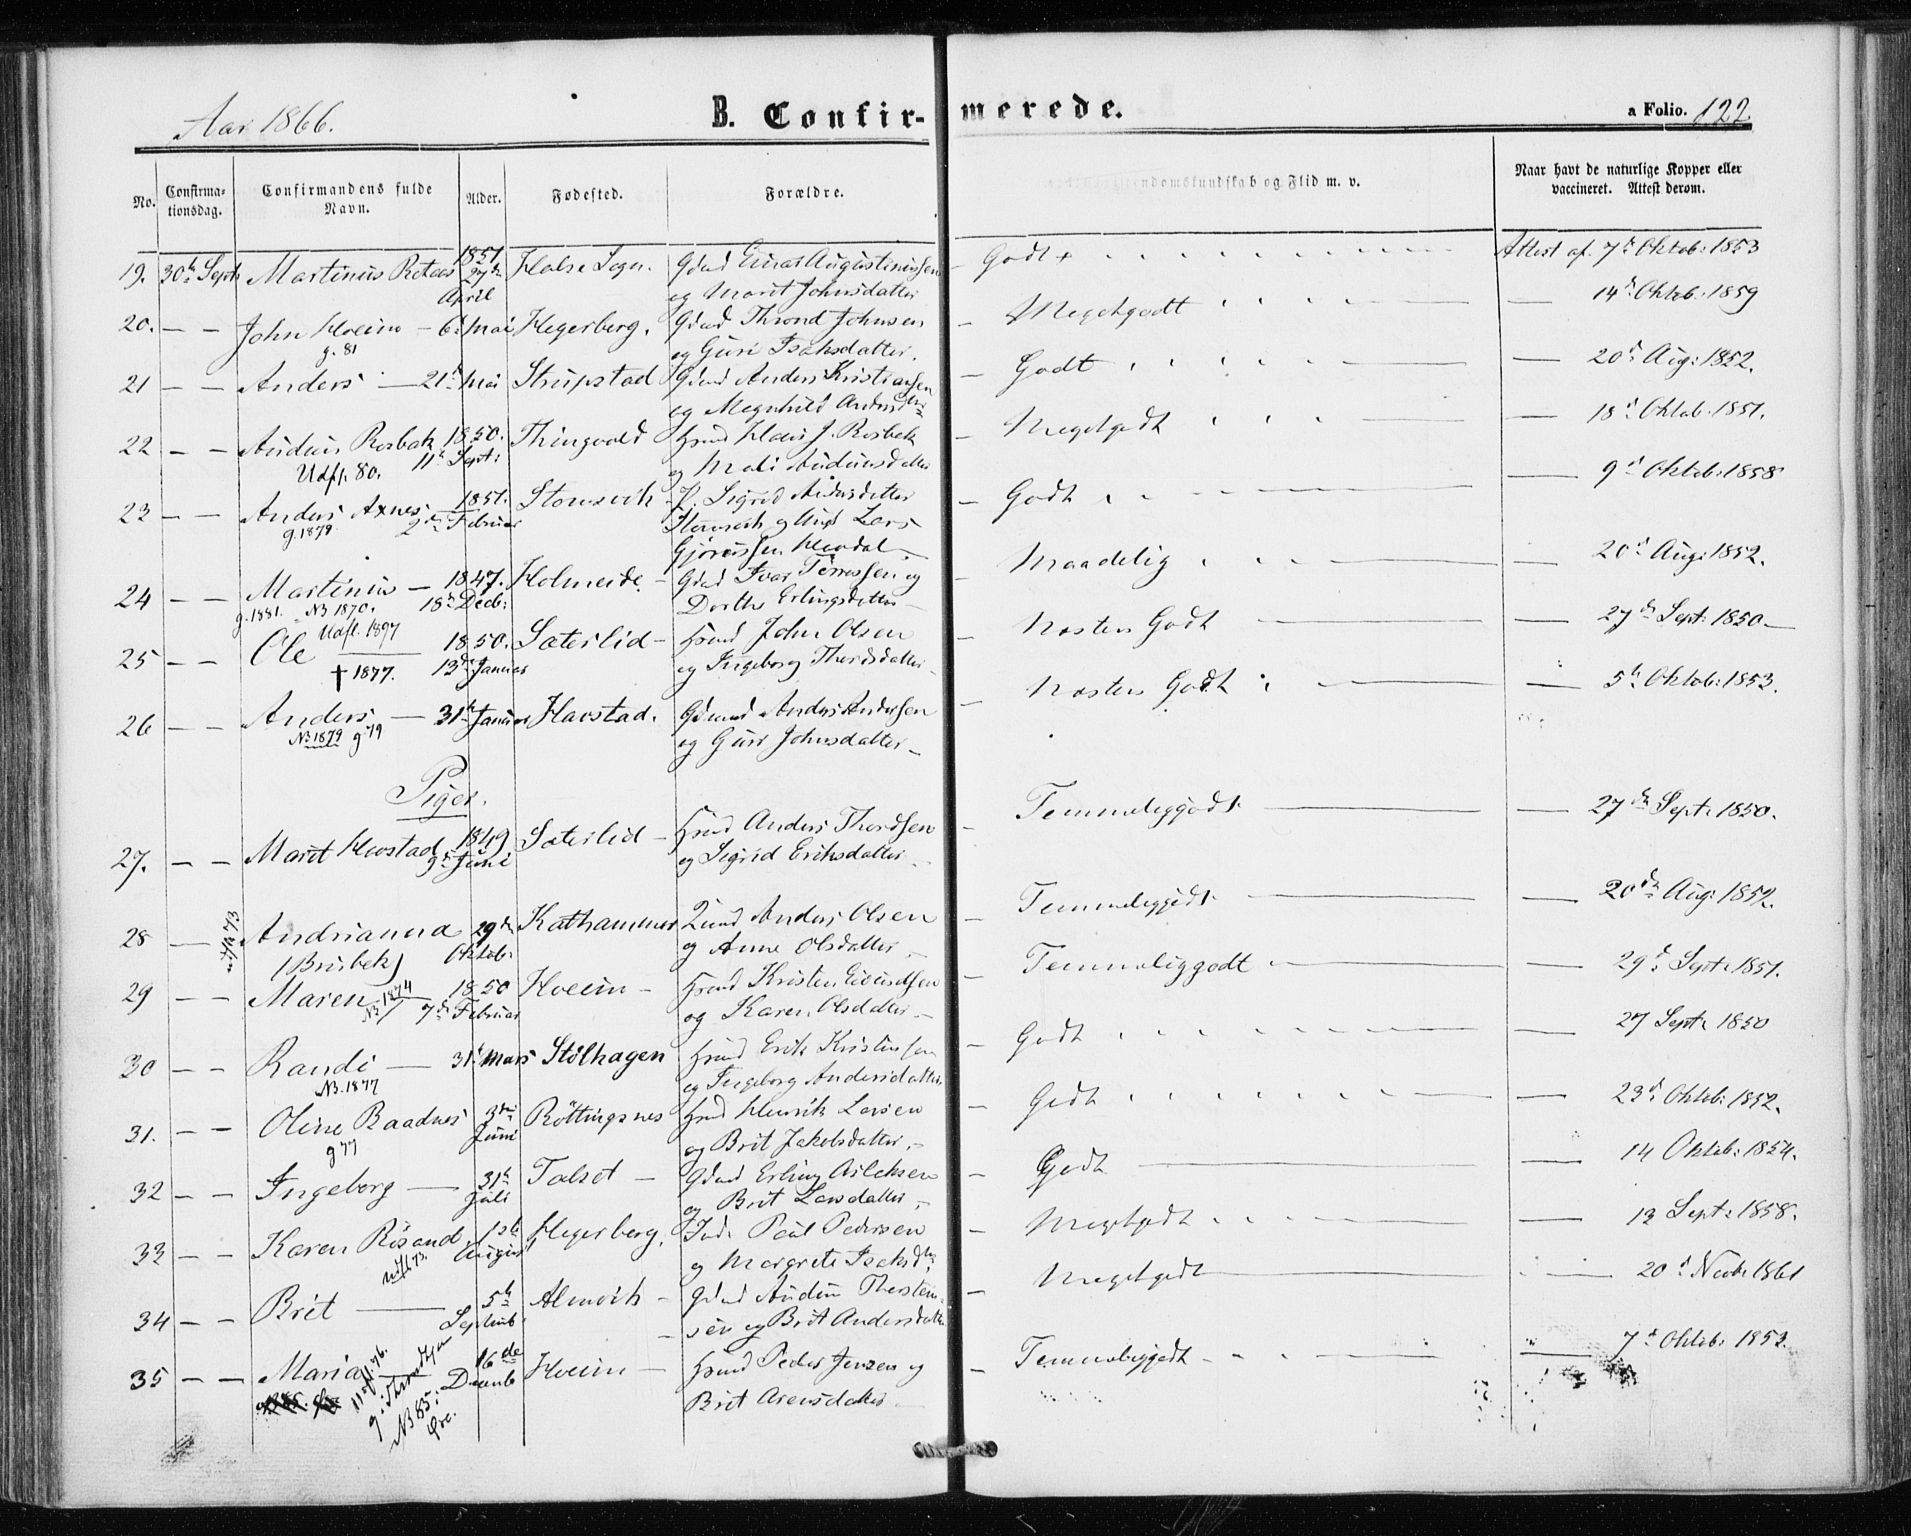 Aar 1866.
B. Confirmerede.
a Folio. 122.
No.
Confirmationsdag.
Confirmandens fulde Navn.
Alder.
Fødested.
Forældre.
domskundskab og Flid m. v.
Naar havt de naturlige Kopper eller vaccineret. Attest derom.
19. 30te Sept Martinus 1851 27de April Halse Sogn. Gmd Einar Augustinussen og Marit Johnsdatter Godt + Attest af 7de Oktob: 1853
20. — — John Hoeim g. 81 — 6te Mai Hegerberg. Gmd Thrond Johnsen og Guri Isaksdatter. Megetgodt — 14de Oktob: 1859
21 — — Anders — 21de Mai Strupstad Gmd Anders Kristiansen og Magnhild Andersdtr Godt — 20de Aug: 1852.
22 — — Audun Rosbak Udfl. 80. 1850. 11te Sept: Thingvold J. Rosbak og Mali Audunsdatter Megetgodt — 18de Oktob. 1851.
23 — — Anders Axnes g. 1879 1851. 2den Februar Storvik P. Sigrid Storvik og Lars Godt — 9de Oktob: 1858
24 — — Martinus — g. 1881. NB 1870. 1847. 18de Decb: Holmeide. Gmd Ivar og Dorthe Erlingsdatter Maadelig — 20de Aug: 1852.
25 — — Ole Udfl. 1897 † 1877. 1850. 13de Januar Sæterlid — Hmd John Olsen og Ingeborg Thordsdatter Næsten Godt — 27de Sept: 1850 —
26 — — Anders — NB 1879 g 79 31te Januar Havstad. Gmd Anders Andersen og Guri Johnsdatter — Næsten Godt — 5te Oktob: 1853.
Piger.
27. — — Marit Havstad 1849 9de Juni Sæterlid — Hmd Anders Thordsen og Sigrid Eriksdatter — Temmeliggodt — 27de Sept: 1850.
28 — Andrianna (Brisbek) 29de Oktob: Kathammer Anders Olsen og Anne Olsdatter — Temmeliggodt — 20de Aug: 1852.
29 — — Maren NB 1874 1850 7de Februar Hoeim — Hmd Kristen Eivindsen og Karen Olsdatter — Temmeliggodt — 29de Sept: 1851.
30 — — Randi — NB. 1877 31te Mars Stölhagen Hmd Erik Kristensen og Ingeborg Andersdatter Godt 27 Sept: 1850
31. — — Oline Raadnes g 77 3die Juni Röttingsnes Hmd Henrik Larsen og Brit Jakobsdatter. — Godt — 23de Oktob: 1852.
32 — — Ingeborg — 31te Juli Talset — Gmd Erling og Brit Larsdatter — Godt — 14 Oktob: 1854.
33 — — Karen Rösand udfl. 73. 1ste August Hegerberg. Paul Pedersen og Margrete Isaksdtr Megetgodt — 12 Sept: 1858.
34 — — Brit — 5te Septemb. Almvik — Gmd Audun Thorstensen og Brit Andersdatter Megetgodt — 20de Novb: 1861
35 — — Maria NB 85. 16de Decemb Hoeim — Hmd Peder Jensen og Brit Arensdatter — Temmeliggodt — 7de Oktob: 1853.